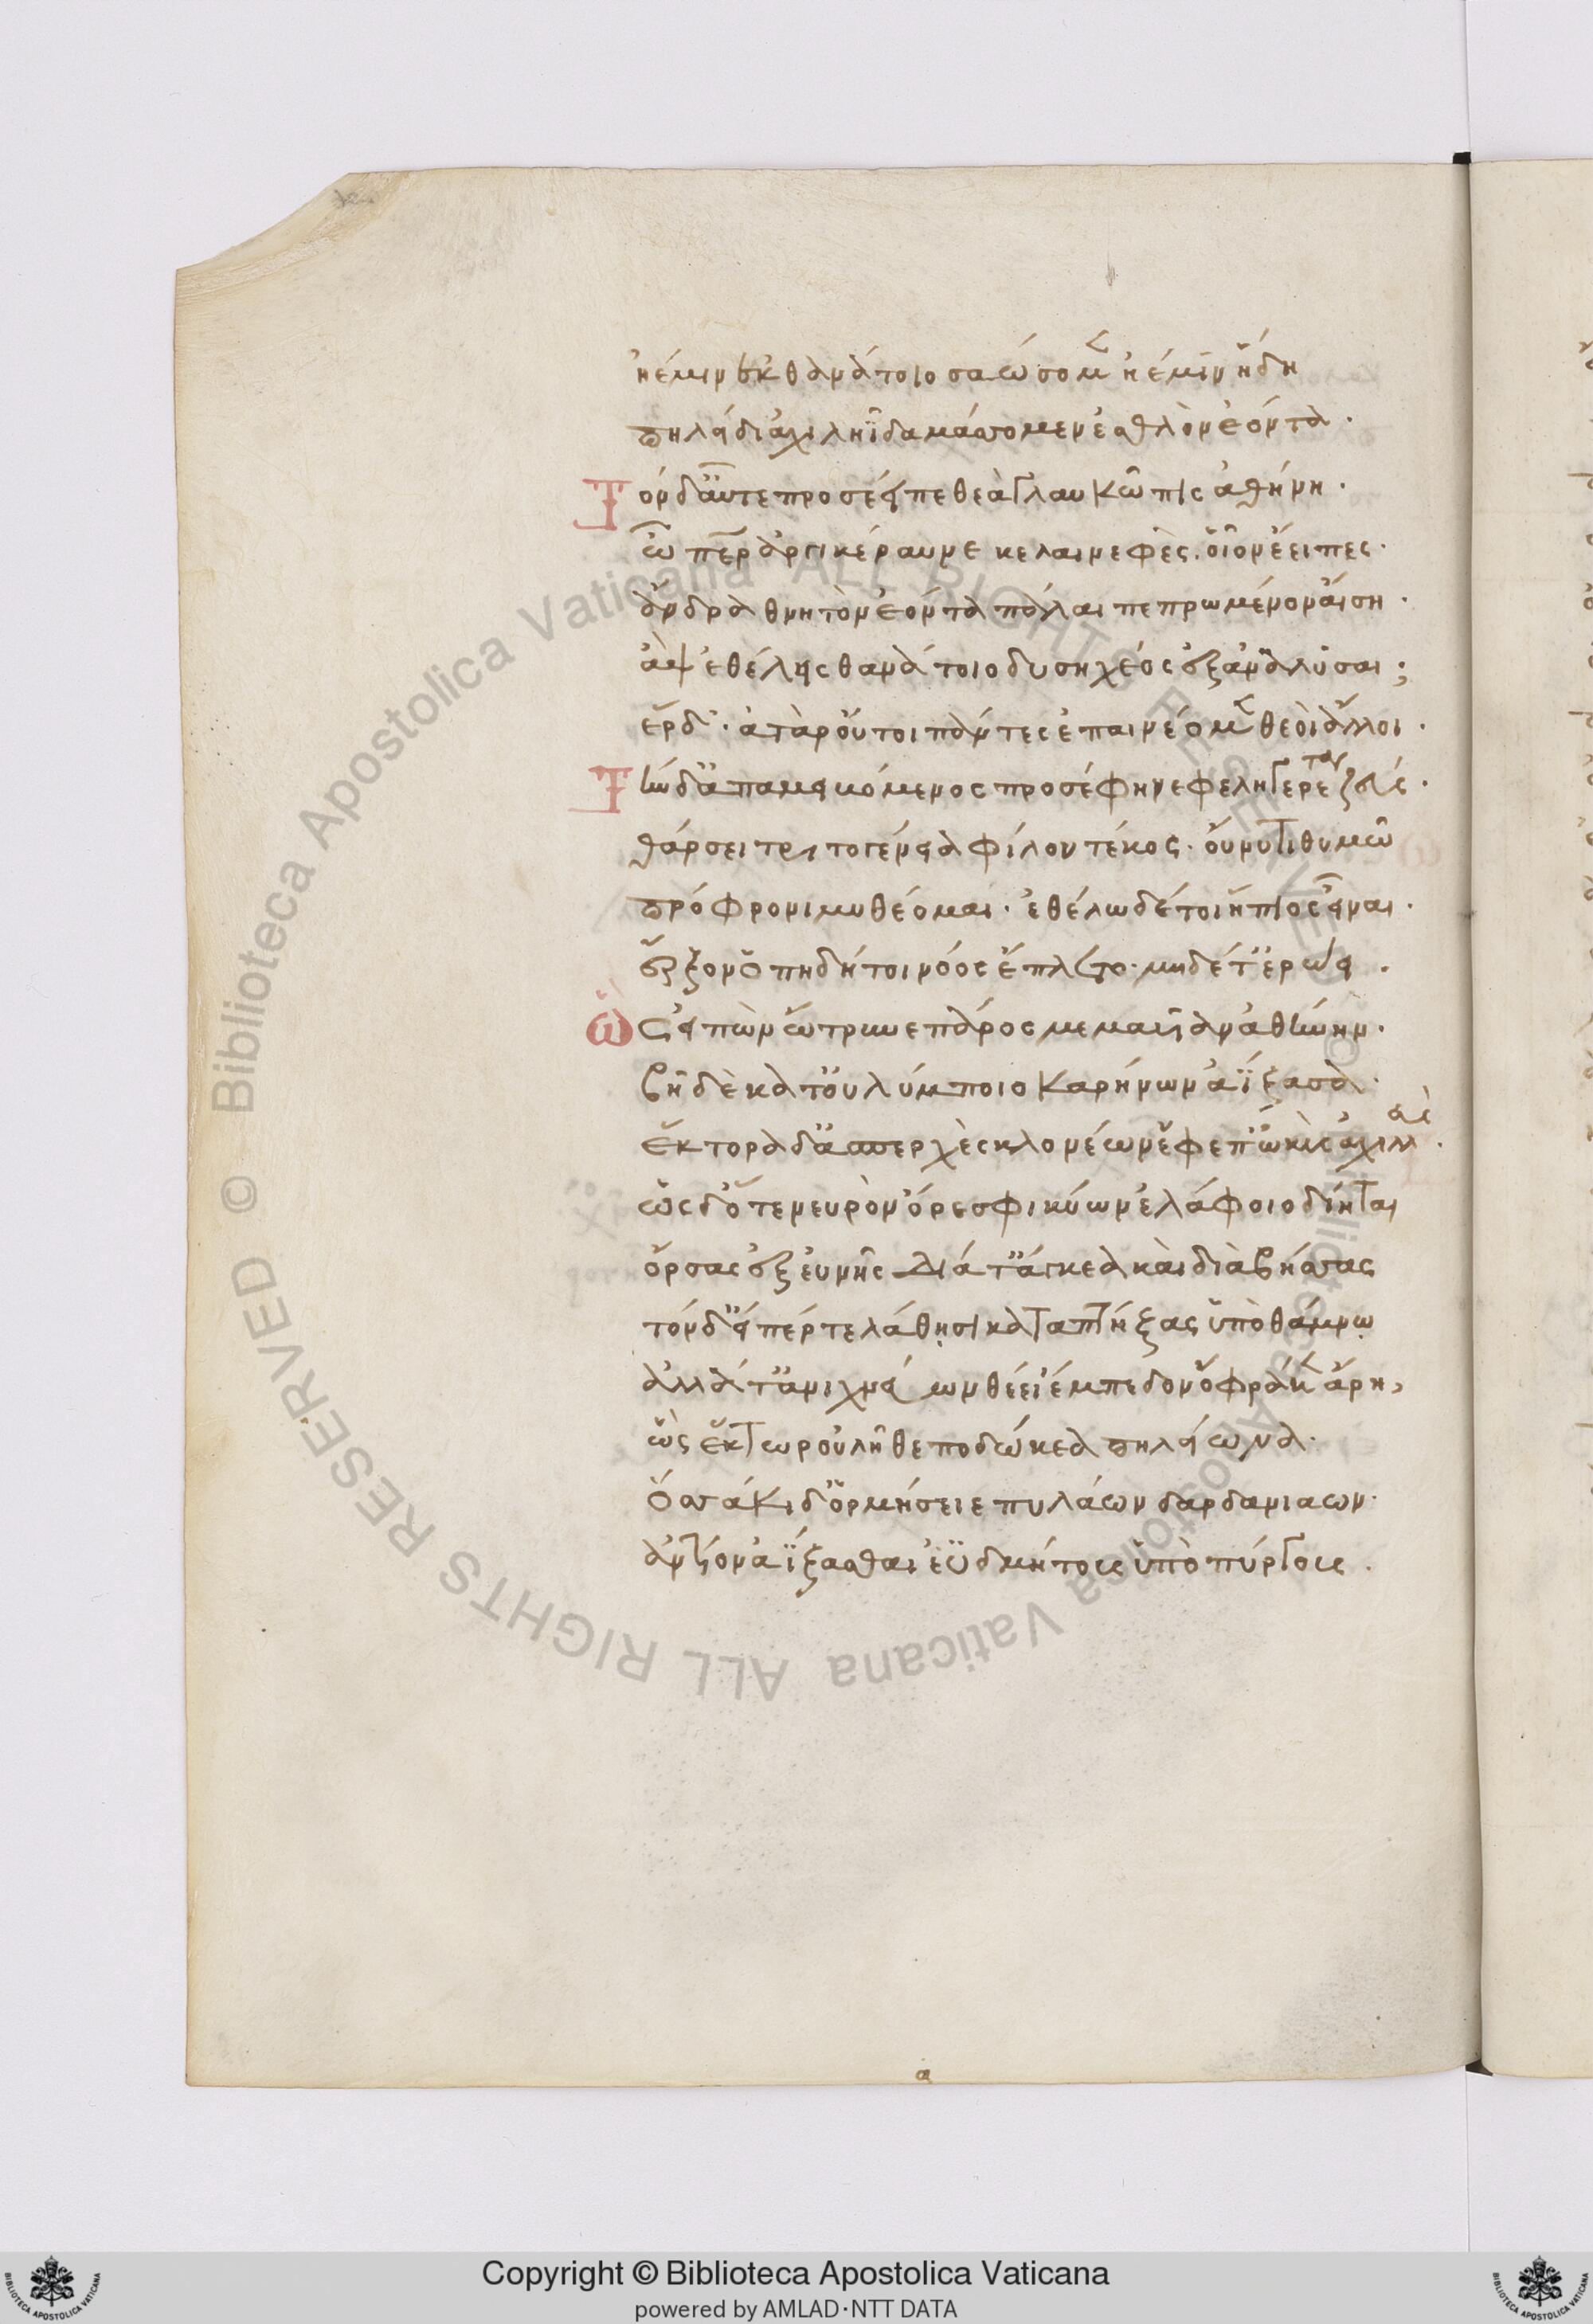 ἠέμιν ἐκ θανάτοιο σαώσομεν ἠέ μιν ἤδη
πηλείδι ἀχιλῆϊ δαμάσσομεν ἐσθλὸν ἐόντα·
Τὸν δ' αὖτε προσέειπε θεὰ γλαυκῶπις ἀθήνη·
ὦ πάτερ ἀργικέραυνε κελαινεφὲς. οἷον ἔειπες·
ἄνδρα θνητὸν ἐόντα πάλαι πεπρωμένον αἴσῃ·
ἂψ ἐθέλεις θανάτοιο δυσηχέος ἐξαναλῦσαι;
ἔρδ'· ἀτὰρ οὔτοι πάντες ἐπαινέομεν θεοὶ ἄλλοι·
Τὴν δ' ἀπαμειβόμενος προσέφη νεφεληγερέτα ζεύς·
θάρσει τριτογένεια φίλον τέκος· οὔ νύ τι θυμῶ
πρόφρονι μυθέομαι· ἐθέλω δέ τοι ἤπιος εἶναι·
ἔρξον ὅπη δή τοι νόος ἔπλετο· μηδέ τ' ἐρώει.
Ὣς εἰπὼν ὤτρυνε πάρος μεμαυῖαν ἀθήνην·
βῆ δὲ κατ' οὐλύμποιο καρήνων ἀΐξασα·
ἕκτορα δ' ἀσπερχὲς κλονέων ἔφεπ' ὠκὺς ἀχιλλεύς·
ὡς δ' ὅτε νευρὸν ὄρεσφι κύων ἐλάφοιο δίηται
ὄρσας ἐξ εὐνῆς διά τ' ἄγκεα καὶ διὰ βήσσας
τόν δ' εἴπέρ τε λάθησι καταπτήξας ὑπὸ θάμνω
ἀλλά τ' ἀνιχνεύων θέει ἔμπεδον ὄφρά κεν εὕρη,
ὣς ἕκτωρ οὐ λῆθε ποδώκεα πηλείωνα·
ὁσσάκι δ' ὁρμήσειε πυλάων δαρδανιάων·
ἀντίον ἀΐξασθαι ἐϋδμήτους ὑπὸ πύργους.
α
© Biblioteca Apostolica Vaticana ALL RIGHTS RESERVED
© Biblioteca Apostolica Vaticana ALL RIGHTS RESERVED
Copyright © Biblioteca Apostolica Vaticana
powered by AMLAD·NTT DATA